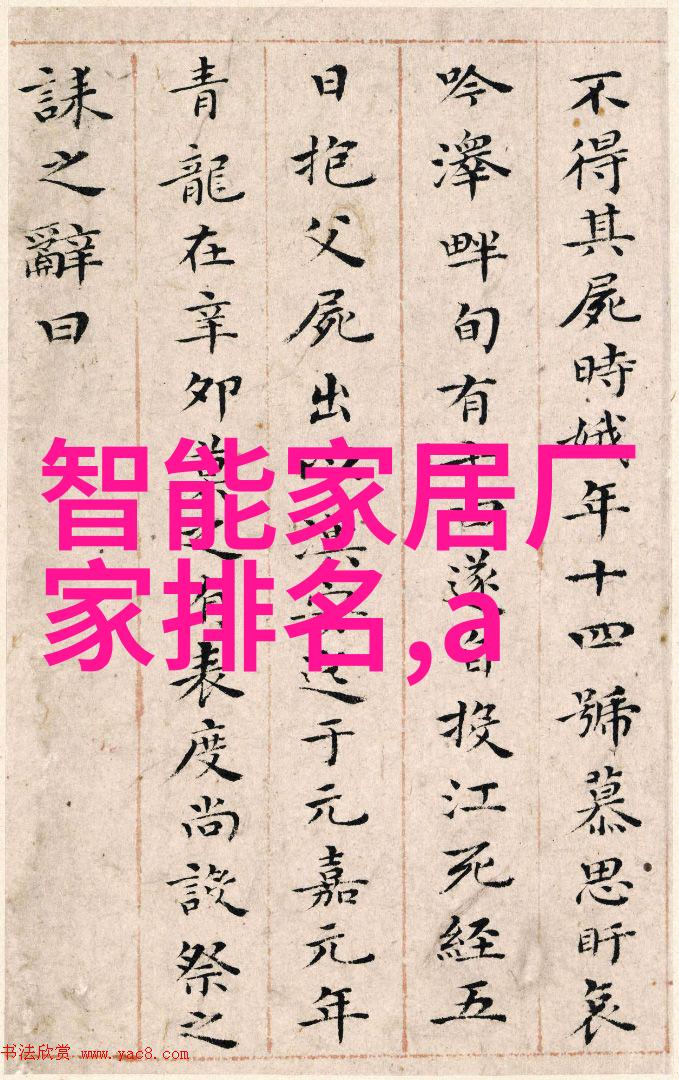 不得其屍時娥年十四號慕思盱哀
吟澤畔旬有七日遂自投江死経五
日抱父屍出以漢安迄于元嘉元年
青龍在辛卯莫之有表度尚設祭之
誄之辭曰
智能家居厂
家排名,a
书法欣赏 www.yac8.com